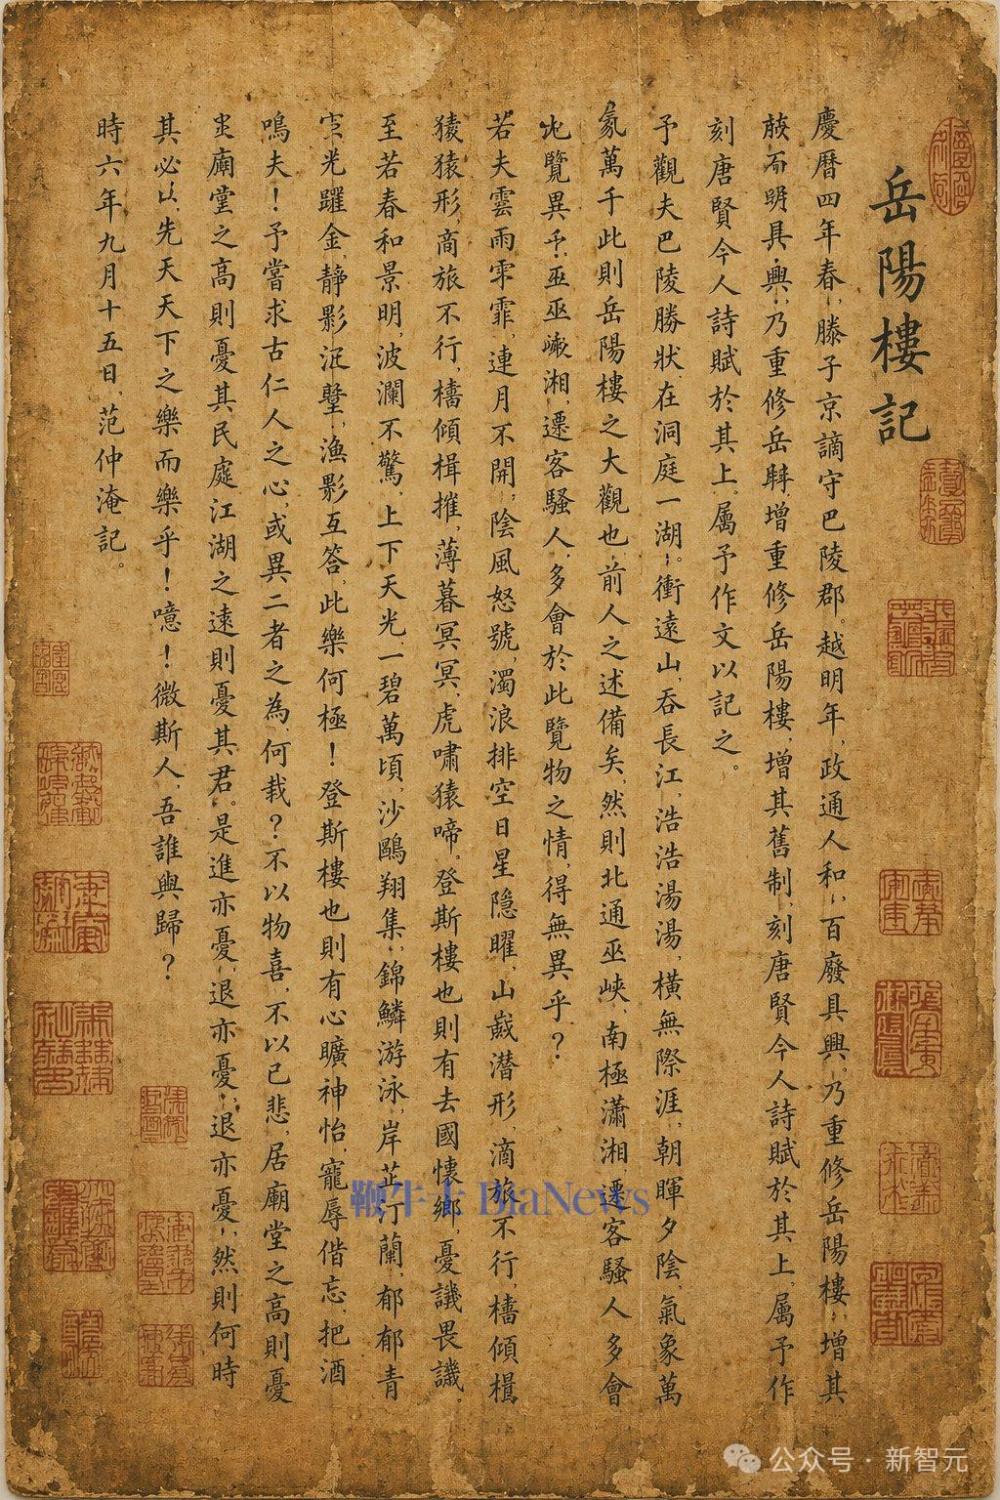 岳陽樓記
慶曆四年春,滕子京謫守巴陵郡。越明年,政通人和,百廢具興,乃重修岳陽樓,增其
明具興,乃重修岳增重修岳陽樓,增其舊制,刻唐賢今人詩賦於其上,属予作
刻唐賢今人詩賦於其上,属予作文以記之。
予觀夫巴陵勝狀在洞庭一湖。衝遠山,吞長江,浩浩湯湯,橫無際涯,朝暉夕陰,氣象萬
萬千此則岳陽樓之大觀也,前人之述備矣,然則北通巫峽,南極瀟湘,遷客騷人多會
覽異,巫巫湘,遷客騷人,多會於此覽物之情,得無異乎?
若夫雲雨霏,連月不開,陰風怒號,濁浪排空日星隐曜,山潛形,滴旅不行,檣傾
猿形,商旅不行,檣傾楫摧,薄暮冥冥,虎嘯猿啼,登斯樓也則有去國懷鄉,憂譏畏譏。
至若春和景明,波瀾不驚,上下天光一碧萬頃,沙鷗翔集,錦鱗游泳,岸芷汀蘭,郁郁青
光躍金,靜影,漁影互答,此樂何極!登斯樓也則有心曠神怡,寵辱偕忘,把酒
嗚夫!予嘗求古仁人之心,或異二者之為,何哉?不以物喜,不以已悲,居廟堂之高則憂
廟堂之高則憂其民處江湖之遠則憂其君。是進亦憂,退亦憂,退亦憂,然則何時
其必以先天天下之樂而樂乎!噫!微斯人,吾誰與歸?
時六年九月十五日,范仲淹記。
鞭牛士 BiaNews
公众号·新智元